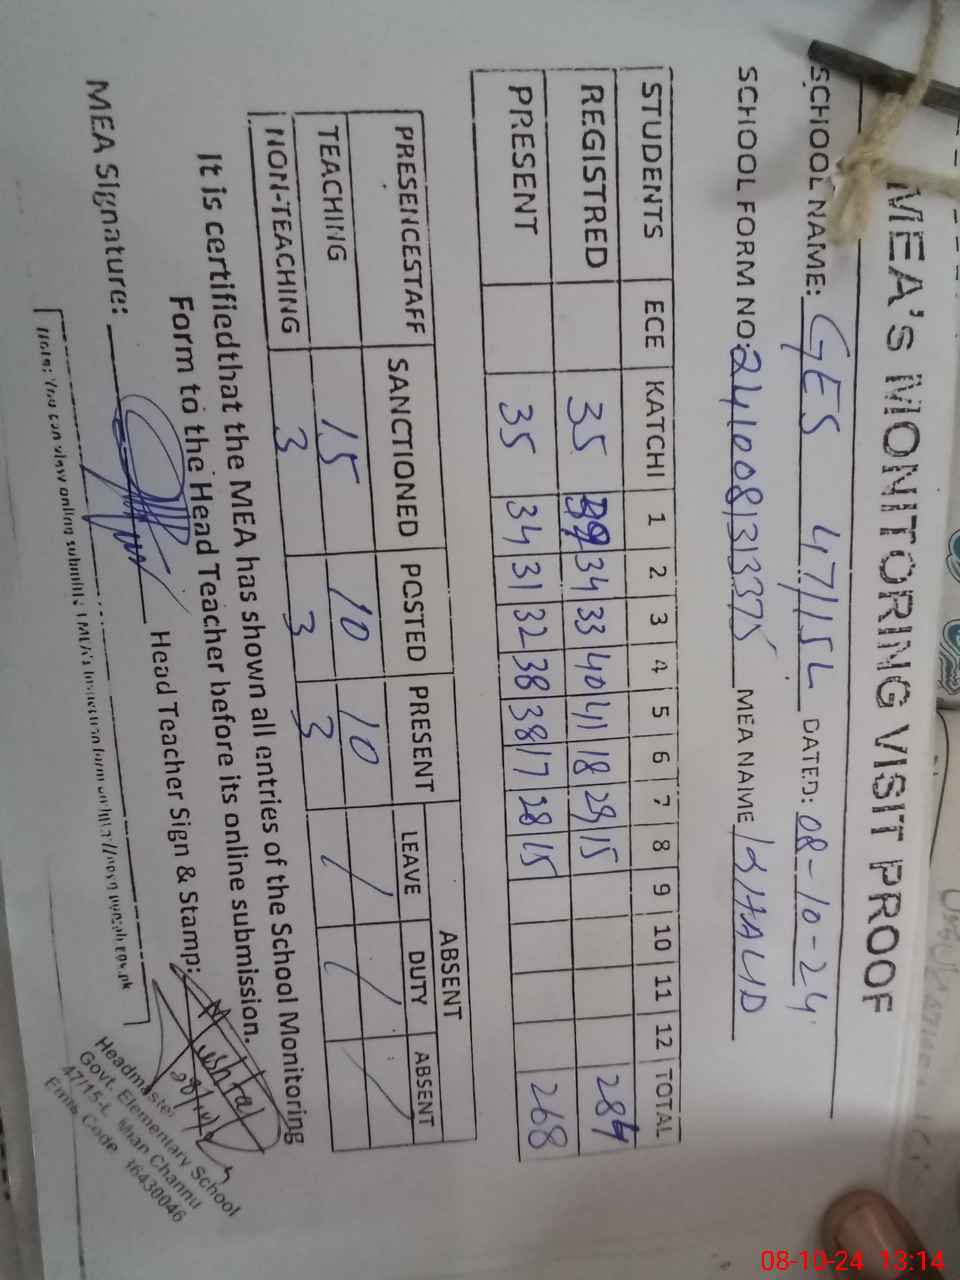 MEA'S MONITORING VISIT PROOF
SCHOOL NAME: GES 47/15L DATED: 08-10-24
SCHOOL FORM NO: 2410081313375 MEA NAME KHALID
STUDENTS ECE KATCHI 1 2 3 4 5 6 7 8 9 10 11 12 TOTAL
REGISTRED 35 39 34 33 40 41 18 29 15 284
PRESENT 35 34 31 32 38 38 17 28 15 268
PRESENCESTAFF SANCTIONED POSTED PRESENT ABSENT
LEAVE DUTY ABSENT
TEACHING 15 10 10
NON-TEACHING 3 3 3
It is certifiedthat the MEA has shown all entries of the School Monitoring
Form to the Head Teacher before its online submission.
MEA Signature: Head Teacher Sign & Stamp:
Headmaster
Govt. Elementary School
47/15-L Mian Channu
Emis Code 36430046
Note: You can view online submitted
08-10-24 13:14